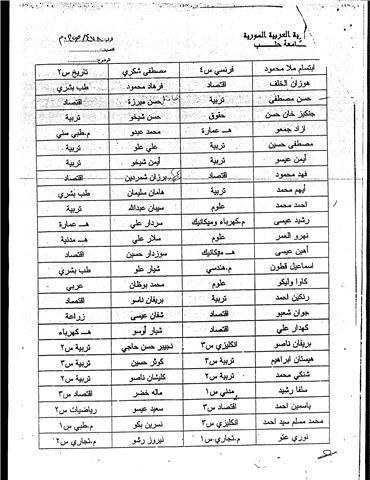 ـرية العربية السورية
ـامعة حلـــب
ابتسام ملا محمود فرنسي س٤ مصطفى شكري تاريخ س٢
هوزان الخلف اقتصاد فرهاد محمود طب بشري
حسن مصطفى تربية حسن ميرزا اقتصاد
جنكيز خان حسن حقوق حسن شيخو تربية
ازاد جمعو هـ عمارة محمد عبدو م.طبي سني
مصطفى حسين تربية علي علو تربية
أيمن عيسو تربية أيمن شيخو تربية
فهد محمود اقتصاد برزان شمردين اقتصاد
أيهم محمد تربية هامان سليمان طب بشري
احمد محمد علوم سيبان عبدالله تربية
رشيد عيسى م.كهرباء وميكانيك سردار علي هـ عمارة
نهرو العمر علوم سلار علي هـ مدنية
أهين عيسى هـ ميكانيك سوزدار حسين اقتصاد
اسماعيل قطون م.هندسي شيار علو طب بشري
كاوا وليكو علوم محمد بوظان عربي
رنكين احمد تربية بريفان ناسو اقتصاد
جوان شعبو اقتصاد شفان عيسى زراعة
كهدار علي اقتصاد شيار أوسو هـ كهرباء
بريفان ناصو انكليزي س٣ نجيبر حسن حاجي تربية س٢
هيستان ابراهيم تربية س٣ كوثر حسين تربية س٢
شنكي محمد تربية س٢ كليشان ناصو تربية س٢
سلفا رشيد مدني س١ ماله خضر اقتصاد س٣
ياسمين احمد اقتصاد س٣ سعيد عيسو رياضيات س٢
محمد مسلم سيد احمد انكليزي س٣ نسرين بكو م.طبي س١
نوري عنو م.تجاري س١ نيروز رشو م.تجاري س٢